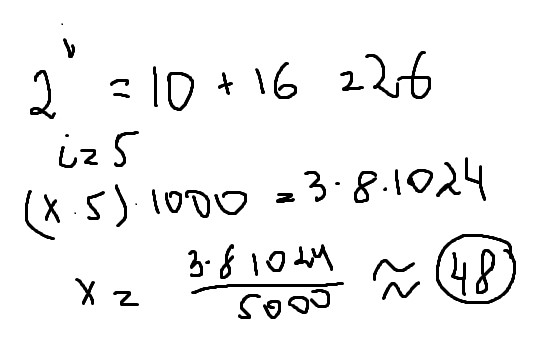 2^i = 10 + 16 = 26
i = 5
(x · 5) · 1000 = 3 · 8 · 1024
x = 3 · 8 1024 / 5000 ≈ 48